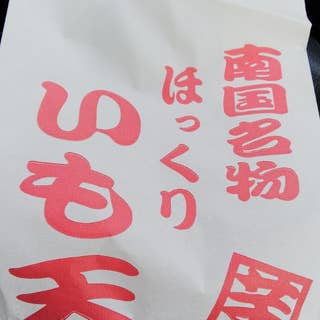 南国名物
ほっくり
いも天